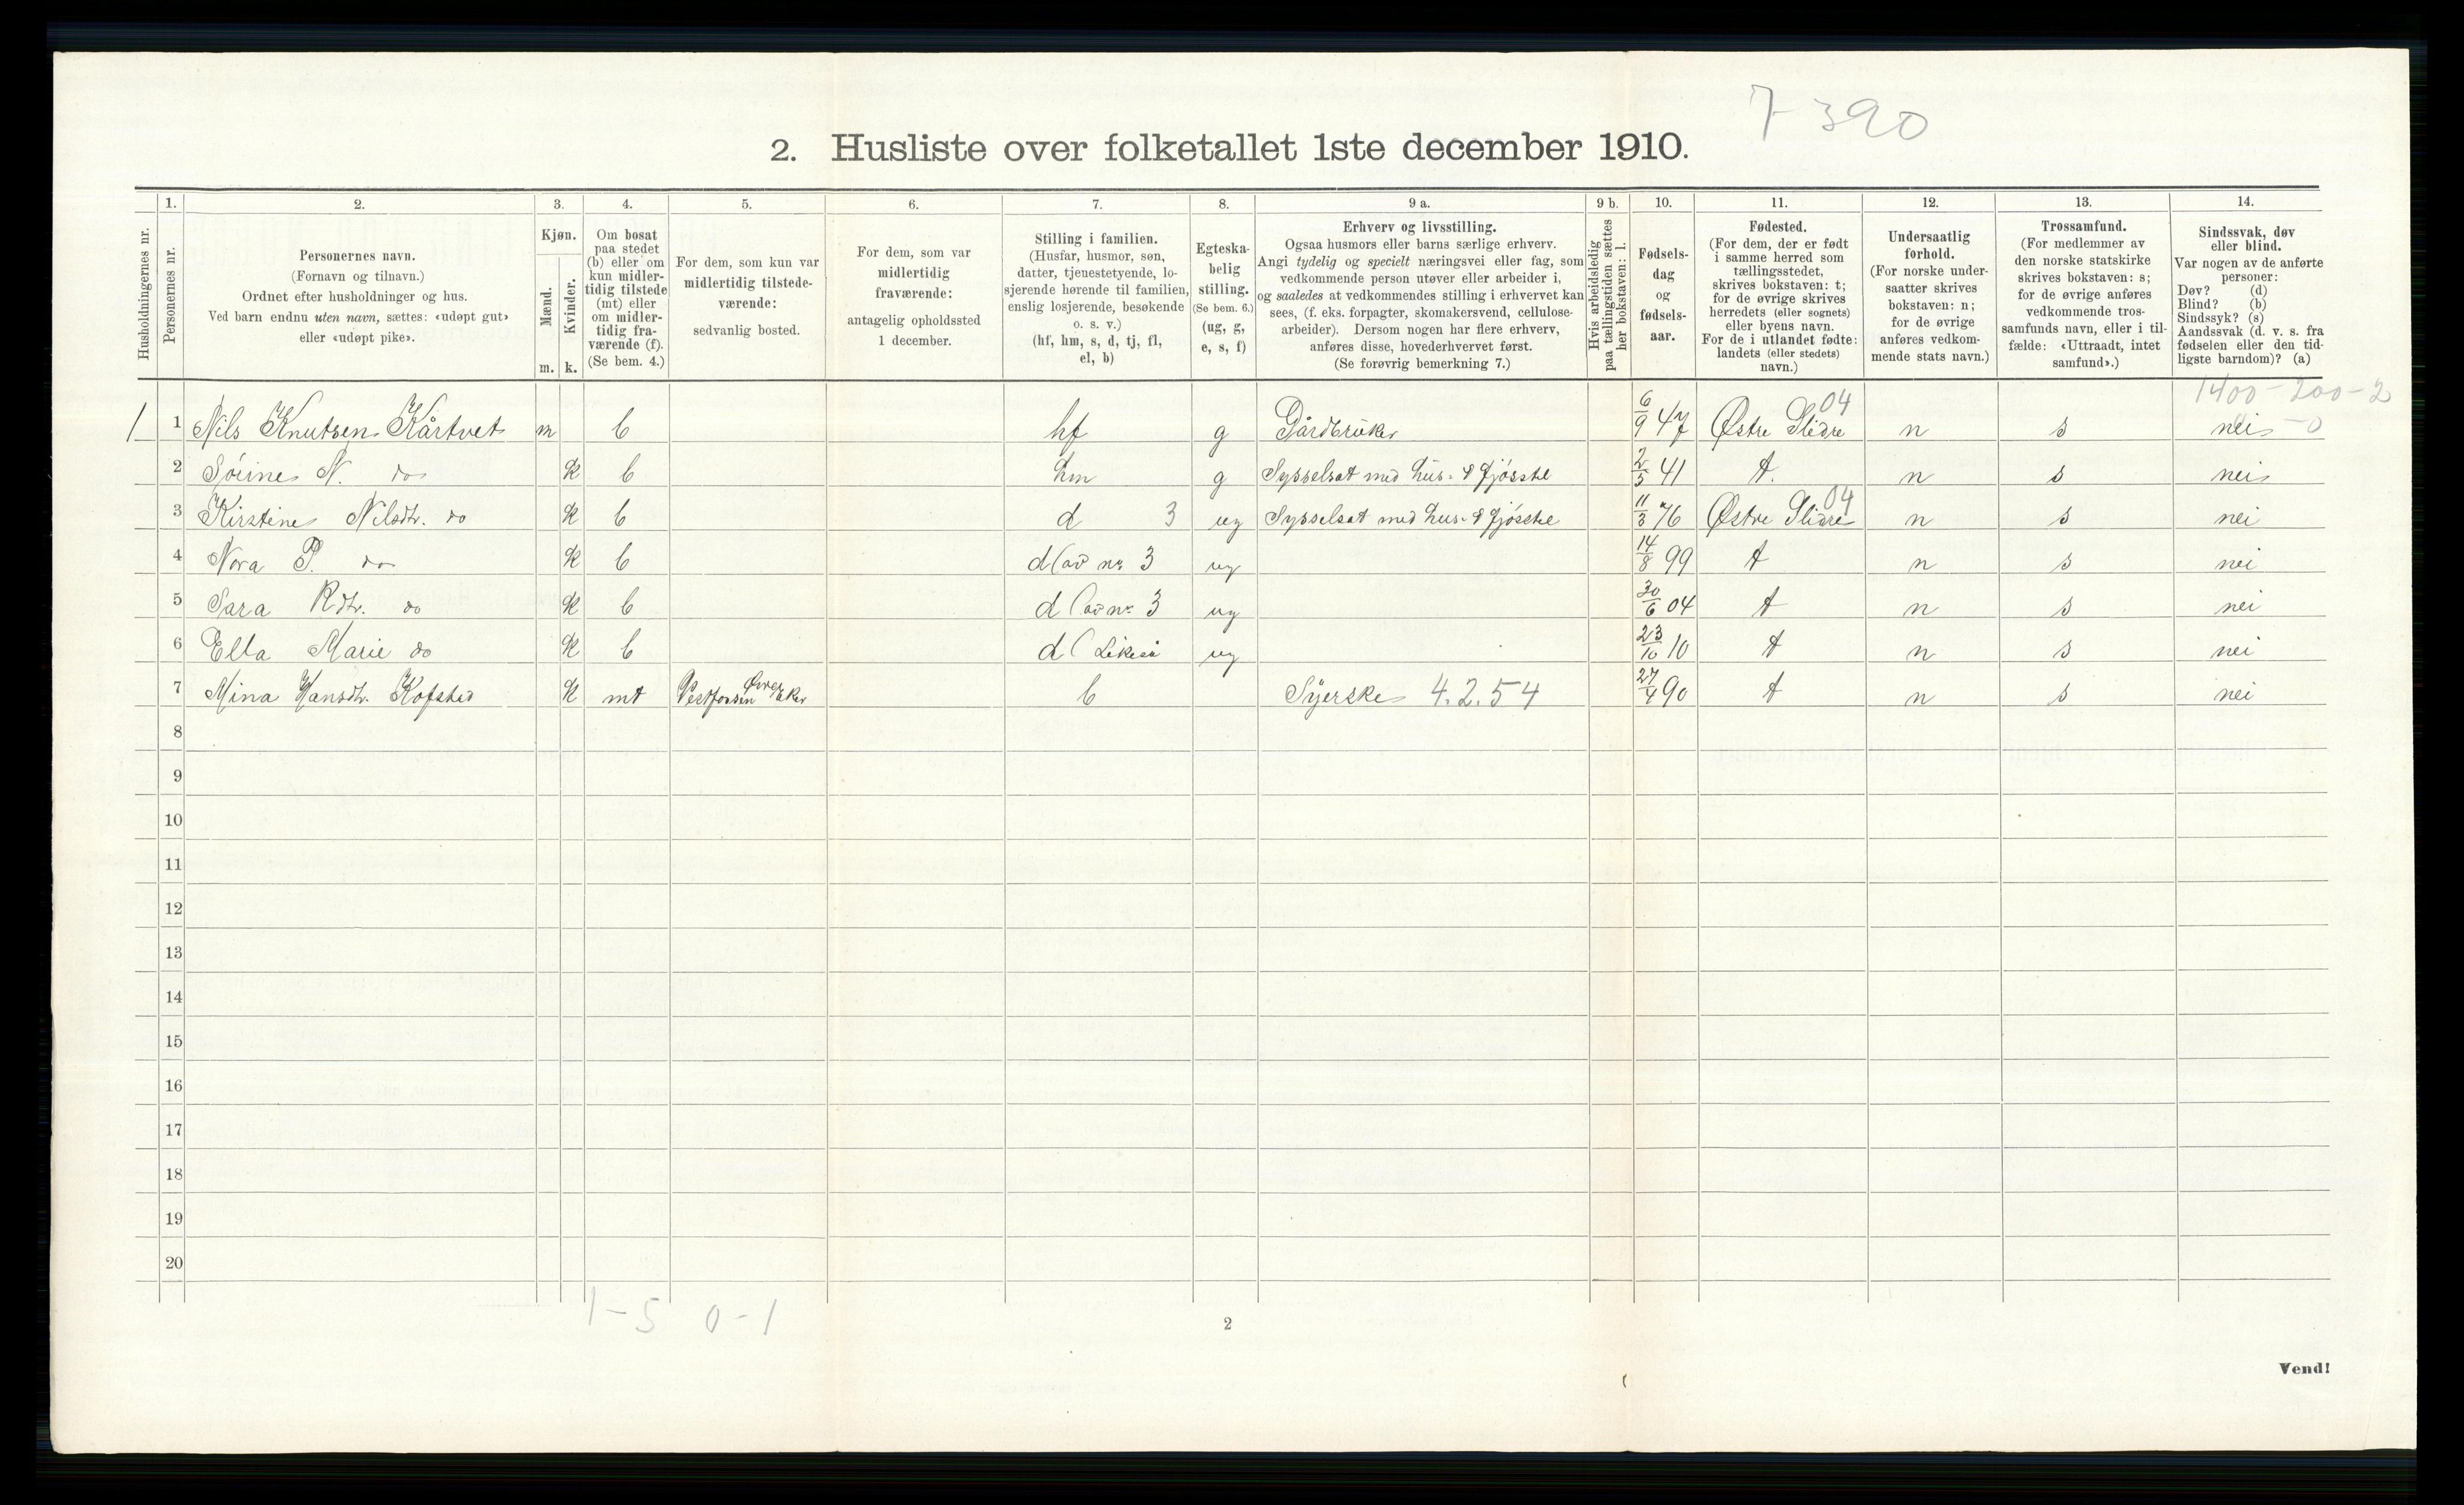 7-390
2. Husliste over folketallet 1ste december 1910.
Husholdningernes nr.
1.
Personernes nr.
2.
Personernes navn.
(Fornavn og tilnavn.)
Ordnet efter husholdninger og hus.
Ved barn endnu uten navn, sættes: «udøpt gut»
eller «udøpt pike».
3.
Kjøn.
Mænd.
Kvinder.
m. k.
4.
Om bosat
paa stedet
(b) eller om
kun midler-
tidig tilstede
(mt) eller
om midler-
tidig fra-
værende (f).
(Se bem. 4.)
5.
For dem, som kun var
midlertidig tilstede-
værende:
sedvanlig bosted.
6.
For dem, som var
midlertidig
fraværende:
antagelig opholdssted
1 december.
7.
Stilling i familien.
(Husfar, husmor, søn,
datter, tjenestetyende, lo-
sjerende hørende til familien,
enslig losjerende, besøkende
o. s. v.)
(hf, hm, s, d, tj, fl,
el, b)
8.
Egteska-
belig
stilling.
(Se bem. 6.)
(ug, g,
e, s, f)
9 a.
Erhverv og livsstilling.
Ogsaa husmors eller barns særlige erhverv.
Angi tydelig og specielt næringsvei eller fag, som
vedkommende person utøver eller arbeider i,
og saaledes at vedkommendes stilling i erhvervet kan
sees, (f. eks. forpagter, skomakersvend, cellulose-
arbeider). Dersom nogen har flere erhverv,
anføres disse, hovederhvervet først.
(Se forøvrig bemerkning 7.)
9 b.
Hvis arbeidsledig
paa tællingstiden sættes
her bokstaven: l.
10.
Fødsels-
dag
og
fødsels-
aar.
11.
Fødested.
(For dem, der er født
i samme herred som
tællingsstedet,
skrives bokstaven: t;
for de øvrige skrives
herredets (eller sognets)
eller byens navn.
For de i utlandet fødte:
landets (eller stedets)
navn.)
12.
Undersaatlig
forhold.
(For norske under-
saatter skrives
bokstaven: n;
for de øvrige
anføres vedkom-
mende stats navn.)
13.
Trossamfund.
(For medlemmer av
den norske statskirke
skrives bokstaven: s;
for de øvrige anføres
vedkommende tros-
samfunds navn, eller i til-
fælde: «Uttraadt, intet
samfund».)
14.
Sindssvak, døv
eller blind.
Var nogen av de anførte
personer:
Døv? (d)
Blind? (b)
Sindssyk? (s)
Aandssvak (d. v. s. fra
fødselen eller den tid-
ligste barndom)? (a)
1400-200-2
04
1 1 Nils Knutsen Kårtvet m b hf g Gårdbruker 6/9 47 Østre Slidre n s nei -0
2 Sørine N. do k b hm g Sysselsat med hus- & fjøsstel 2/5 41 t. n s nei
04
3 Kirstine Nilsdtr. do k b d 3 ug Sysselsat med hus- & fjøsstel 11/3 76 Østre Slidre n s nei
4 Nora P. do k b d (av nr 3 ug 14/8 99 t n s nei
5 Sara Rdtr. do k b d (av nr 3 ug 30/6 04 t n s nei
6 Ella Marie do k b d (Likeså ug 23/10 10 t n s nei
7 Mina Hansdtr. Kofstad k mt Vestfossen Øvre Eker b Syerske 4.2.54 27/4 90 t n s nei
8
9
10
11
12
13
14
15
16
17
18
19
20
1-5 0-1
2
Vend!